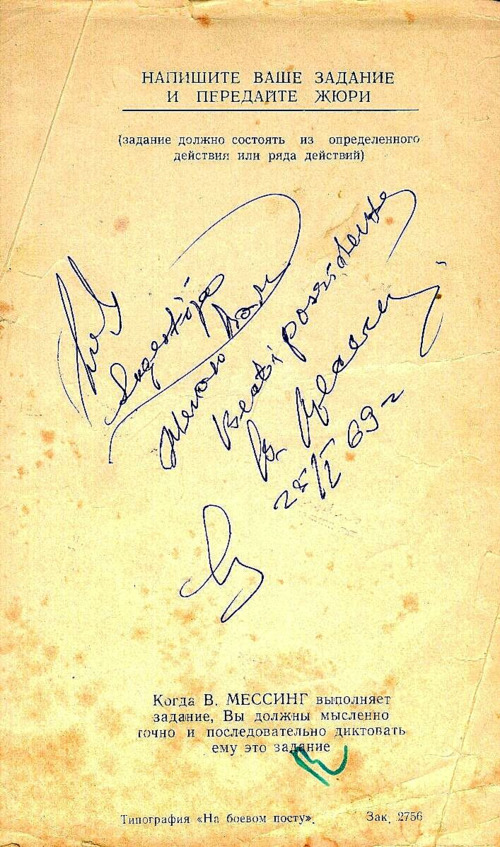 НАПИШИТЕ ВАШЕ ЗАДАНИЕ
И ПЕРЕДАЙТЕ ЖЮРИ
(задание должно состоять из определенного
действия или ряда действий)
Желаю Вам
69 г
Когда В. МЕССИНГ выполняет
задание, Вы должны мысленно
точно и последовательно диктовать
ему это задание
Типография «На боевом посту». Зак. 2756